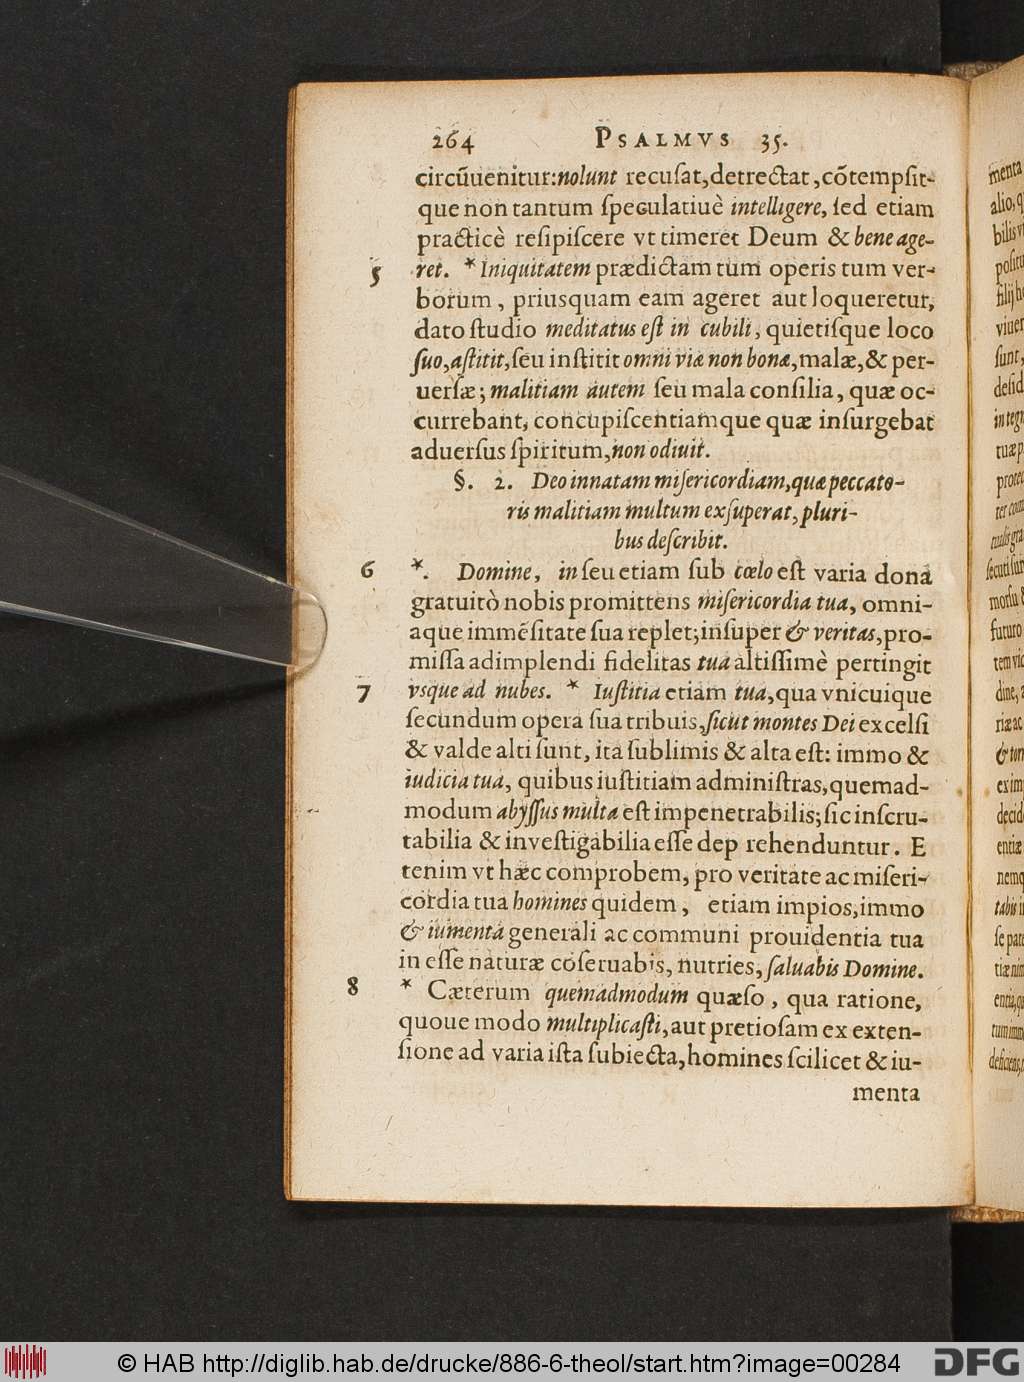 264 PSALMVS 35.
circũuenitur: nolunt recuſat, detrectat, cõtempſit-
que non tantum ſpeculatiuè intelligere, ſed etiam
practicè reſipiſcere vt timeret Deum & bene age-
5 ret. * Iniquitatem prædictam tum operis tum ver-
borum, priusquam eam ageret aut loqueretur,
dato ſtudio meditatus eſt in cubili, quietiſque loco
ſuo, aſtitit, ſeu inſtitit omni viæ non bonæ, malæ, & per-
uerſæ; malitiam autem ſeu mala conſilia, quæ oc-
currebant, concupiſcentiamque quæ inſurgebat
aduerſus ſpiritum, non odiuit.
§. 2. Deo innatam miſericordiam, quæ peccato-
ris malitiam multum exſuperat, pluri-
bus deſcribit.
6 *. Domine, in ſeu etiam ſub cœlo eſt varia dona
gratuitò nobis promittens miſericordia tua, omni-
aque immẽſitate ſua replet; inſuper & veritas, pro-
miſſa adimplendi fidelitas tua altiſſimè pertingit
7 vsque ad nubes. * Iuſtitia etiam tua, qua vnicuique
ſecundum opera ſua tribuis, ſicut montes Dei excelſi
& valde alti ſunt, ita ſublimis & alta eſt: immo &
iudicia tua, quibus iuſtitiam adminiſtras, quemad-
modum abyſſus multa eſt impenetrabilis; ſic inſcru-
tabilia & inveſtigabilia eſſe dep rehenduntur. E
tenim vt hæc comprobem, pro veritate ac miſeri-
cordia tua homines quidem, etiam impios, immo
& iumenta generali ac communi prouidentia tua
in eſſe naturæ cõſeruabis, nutries, ſaluabis Domine.
8 * Cæterum quemadmodum quæſo, qua ratione,
quoue modo multiplicaſti, aut pretioſam ex exten-
ſione ad varia iſta ſubiecta, homines ſcilicet & iu-
menta
© HAB http://diglib.hab.de/drucke/886-6-theol/start.htm?image=00284
DFG